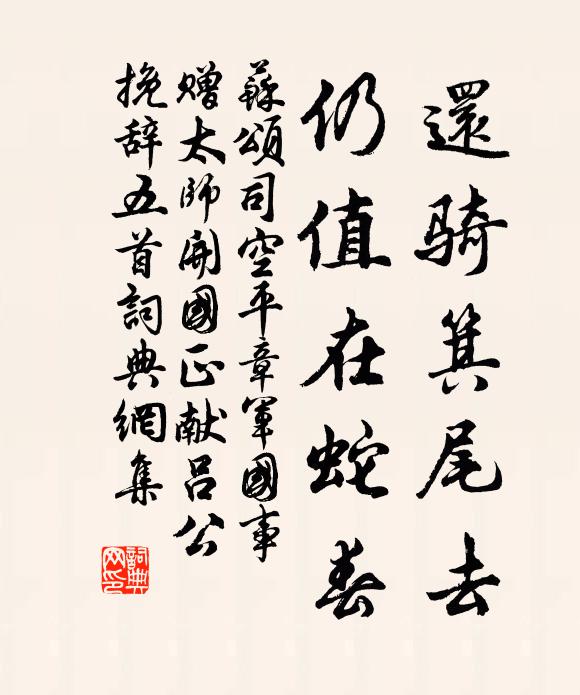 還騎箕尾去
仍值在蛇春
蘇頌司空平章軍國事
贈太師開國正献呂公
挽辞五首詞典網集
詞典网印